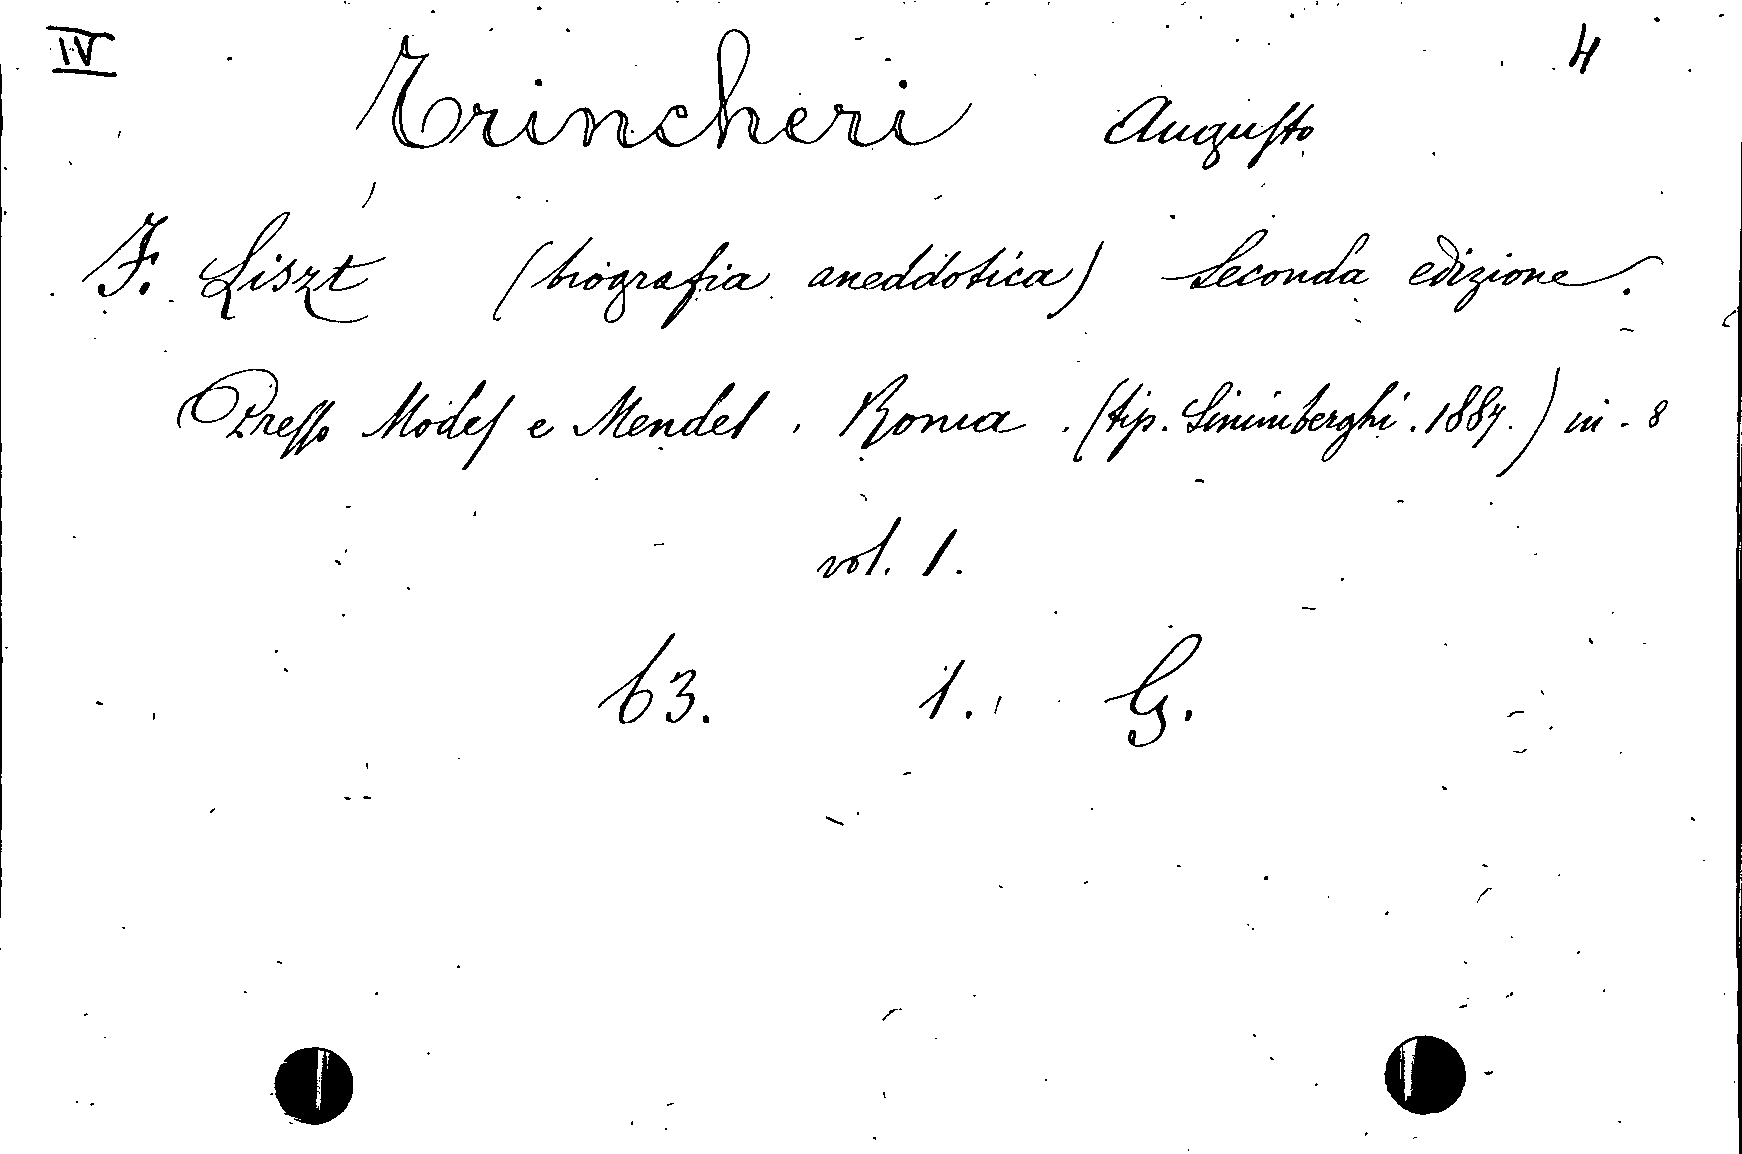 IV 4
Trincheri Augusto
F. Liszt (biografia aneddotica) Seconda edizione.
Presso Modes e Mendel. Roma. (tip. Sinimberghi. 1887.) in-8
vol. 1.
63. 1. G.